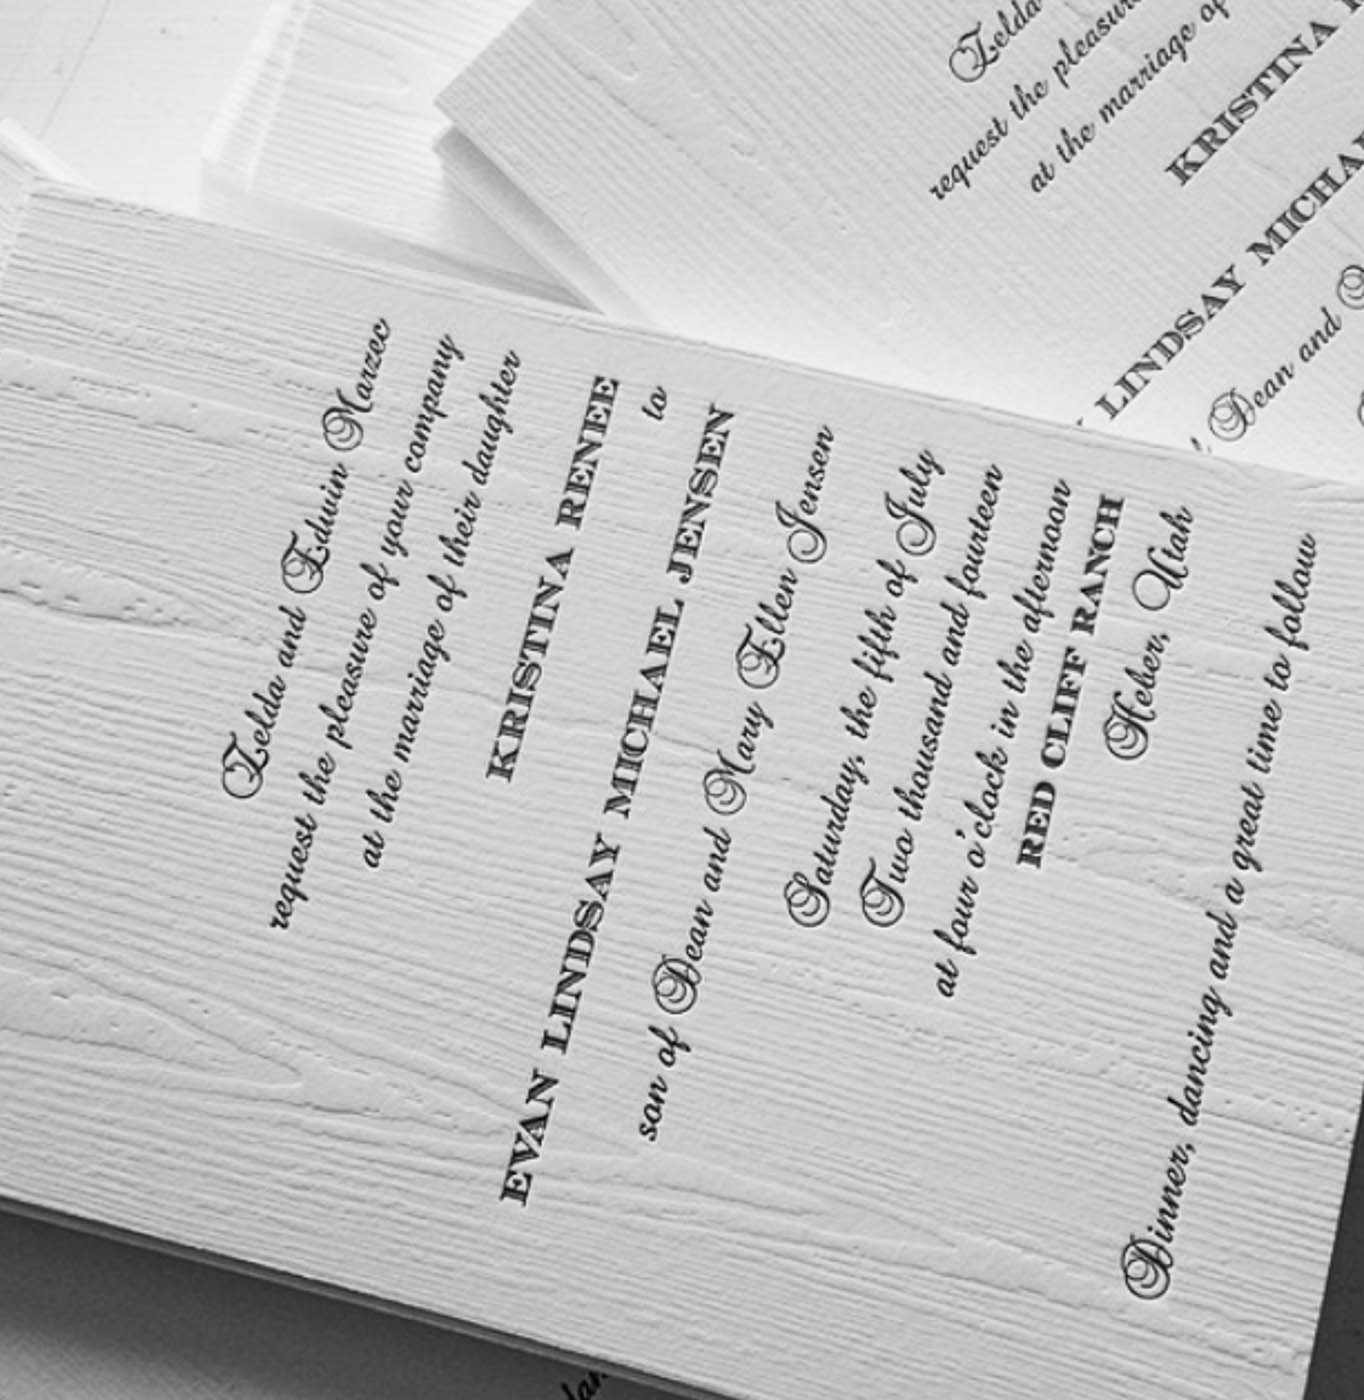 Zelda and Edwin Marzec
request the pleasure of your company
at the marriage of their daughter
KRISTINA RENEE
to
EVAN LINDSAY MICHAEL JENSEN
son of Dean and Mary Ellen Jensen
Saturday, the fifth of July
Two thousand and fourteen
at four o'clock in the afternoon
RED CLIFF RANCH
Heber, Utah
Dinner, dancing and a great time to follow
Zelda
request the pleasure
at the marriage of
KRISTINA
LINDSAY MICHAE
Dean and